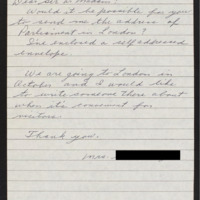 Dear Sir or Madam:
Would it be possible for you
to send me the address of
Parliament in London?
I've enclosed a self addressed
envelope.
We are going to London in
October and I would like
to write someone there about
when it's convenient for
visitors.
Thank you,
Mrs.